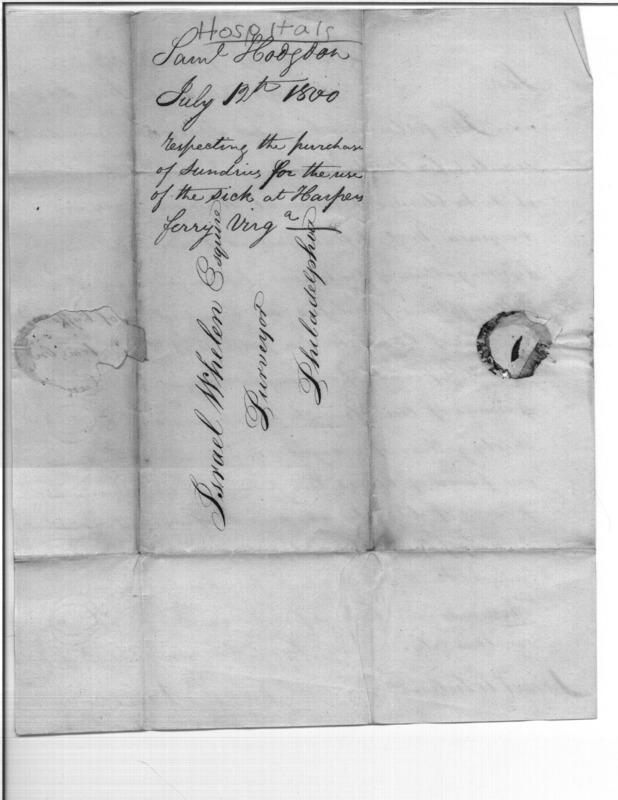 Hospitals
Saml Hodgdon
July 12th 1800
respecting the purchase
of Sundries for the use
of the sick at Harpers
ferry Virga
Israel Whelen Esquire
Purveyor
Philadelphia